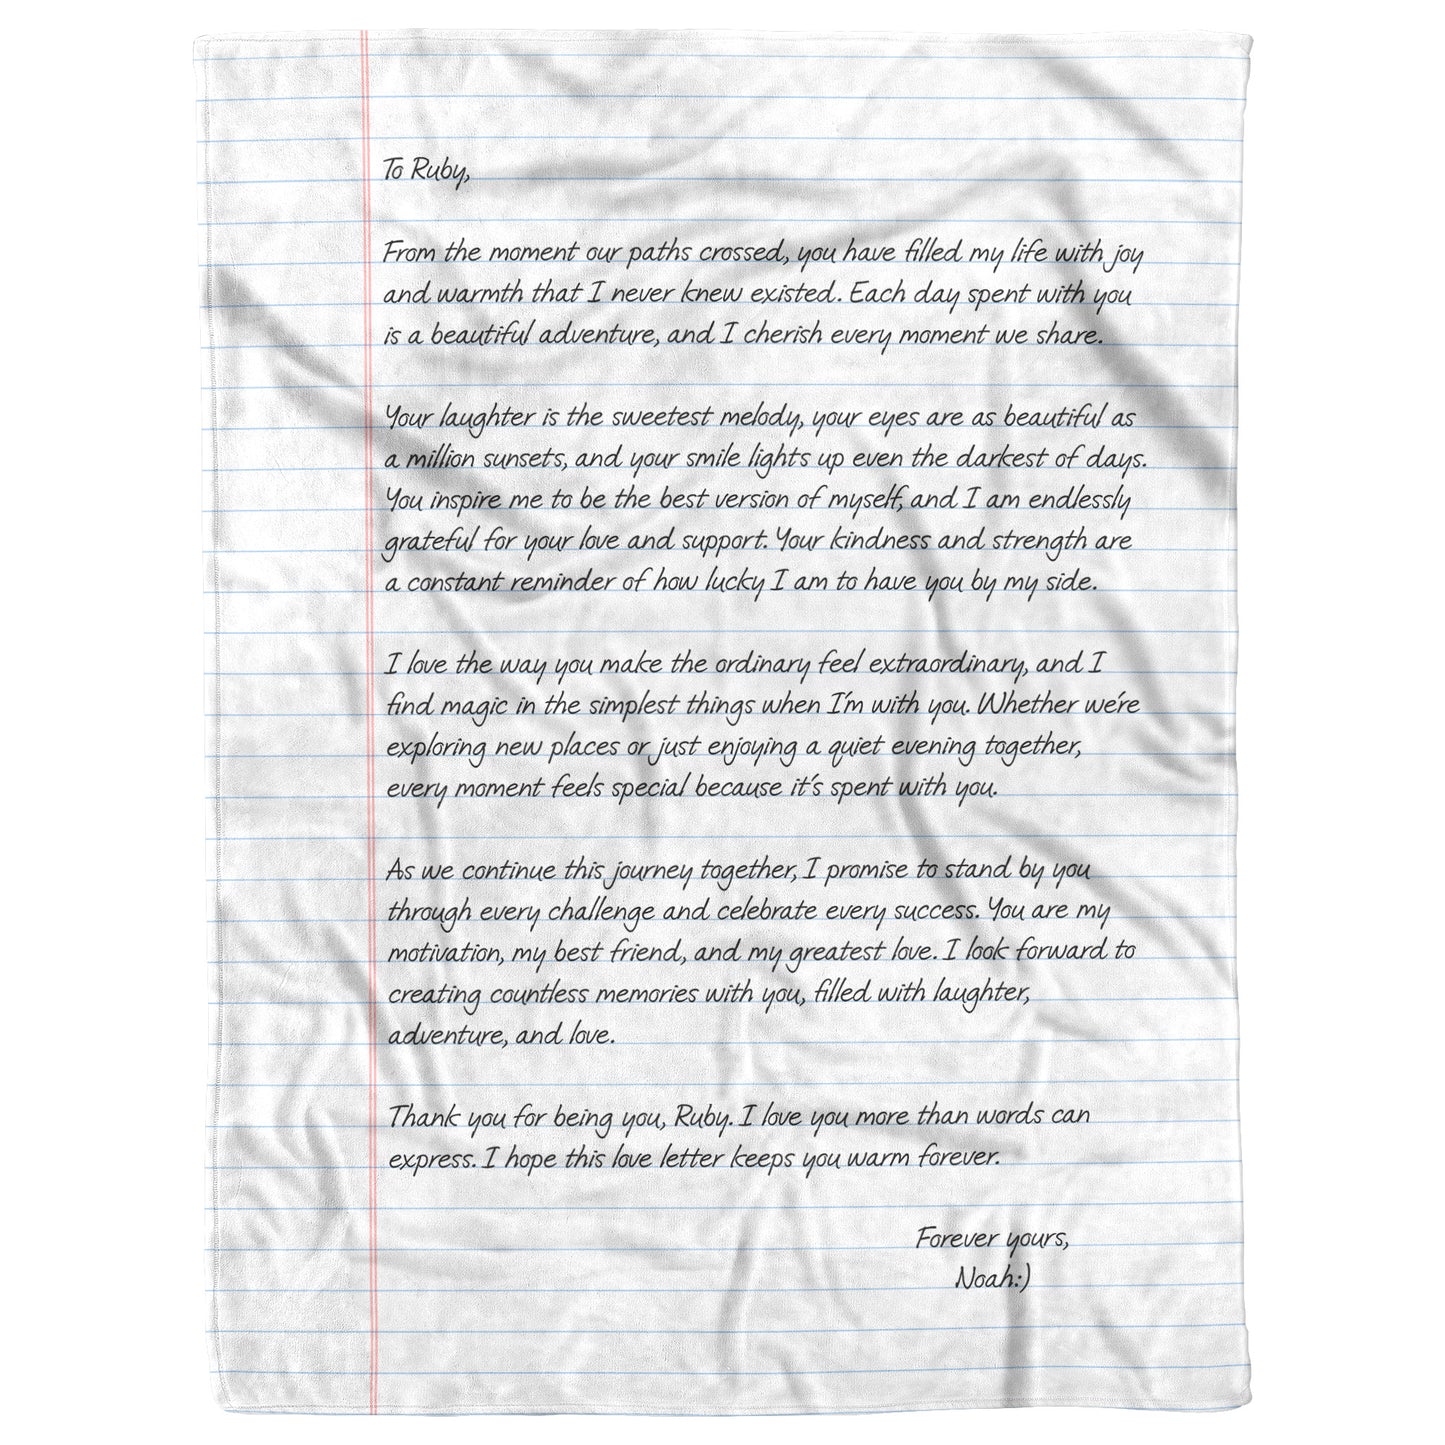 To Ruby,
From the moment our paths crossed, you have filled my life with joy
and warmth that I never knew existed. Each day spent with you
is a beautiful adventure, and I cherish every moment we share.
Your laughter is the sweetest melody, your eyes are as beautiful as
a million sunsets, and your smile lights up even the darkest of days.
You inspire me to be the best version of myself, and I am endlessly
grateful for your love and support. Your kindness and strength are
a constant reminder of how lucky I am to have you by my side.
I love the way you make the ordinary feel extraordinary, and I
find magic in the simplest things when I'm with you. Whether we're
exploring new places or just enjoying a quiet evening together,
every moment feels special because it's spent with you.
As we continue this journey together, I promise to stand by you
through every challenge and celebrate every success. You are my
motivation, my best friend, and my greatest love. I look forward to
creating countless memories with you, filled with laughter,
adventure, and love.
Thank you for being you, Ruby. I love you more than words can
express. I hope this love letter keeps you warm forever.
Forever yours,
Noah:)